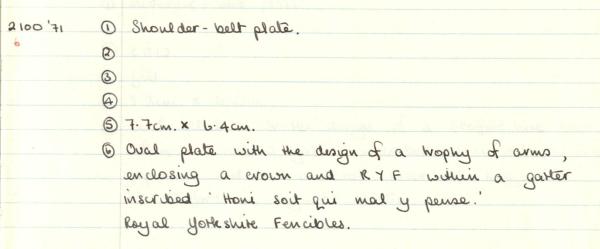 2100 '71 ① Shoulder-belt plate.
6 ②
③
④
⑤ 7.7cm. x 6.4cm.
⑥ Oval plate with the design of a trophy of arms,
enclosing a crown and R Y F within a garter
inscribed 'Honi soit qui mal y pense.'
Royal Yorkshire Fencibles.